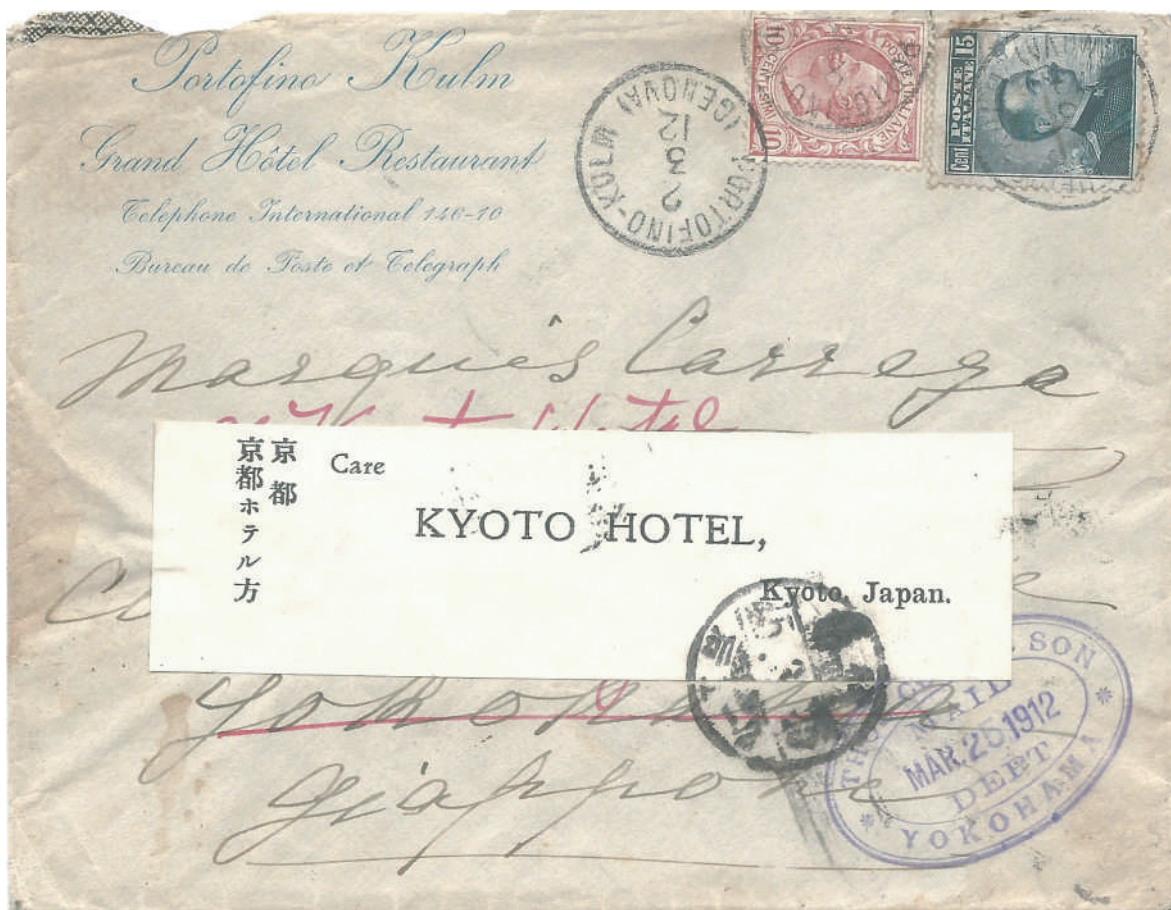 Portofino Kulm
Grand Hôtel Restaurant
Telephone International 146-10
Bureau de Poste et Telegraph
PORTOFINO-KULM (GENOVA)
2 3 12
10 CENTESIMI 10
POSTE ITALIANE
Cent 15
POSTE ITALIANE
Marquis Carrega
Hotel
京都
京都ホテル方
Care
KYOTO HOTEL,
Kyoto, Japan.
Yokohama
Giappone
SON
MAIL
MAR. 25 1912
DEPT
YOKOHAMA